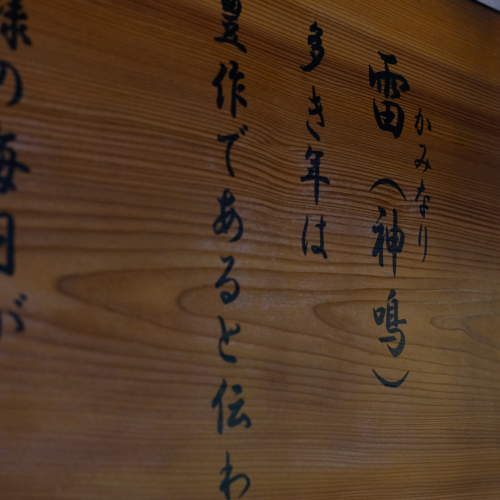 かみなり
雷(神鳴)
多き年は
豊作であると伝わ
様の毎月が